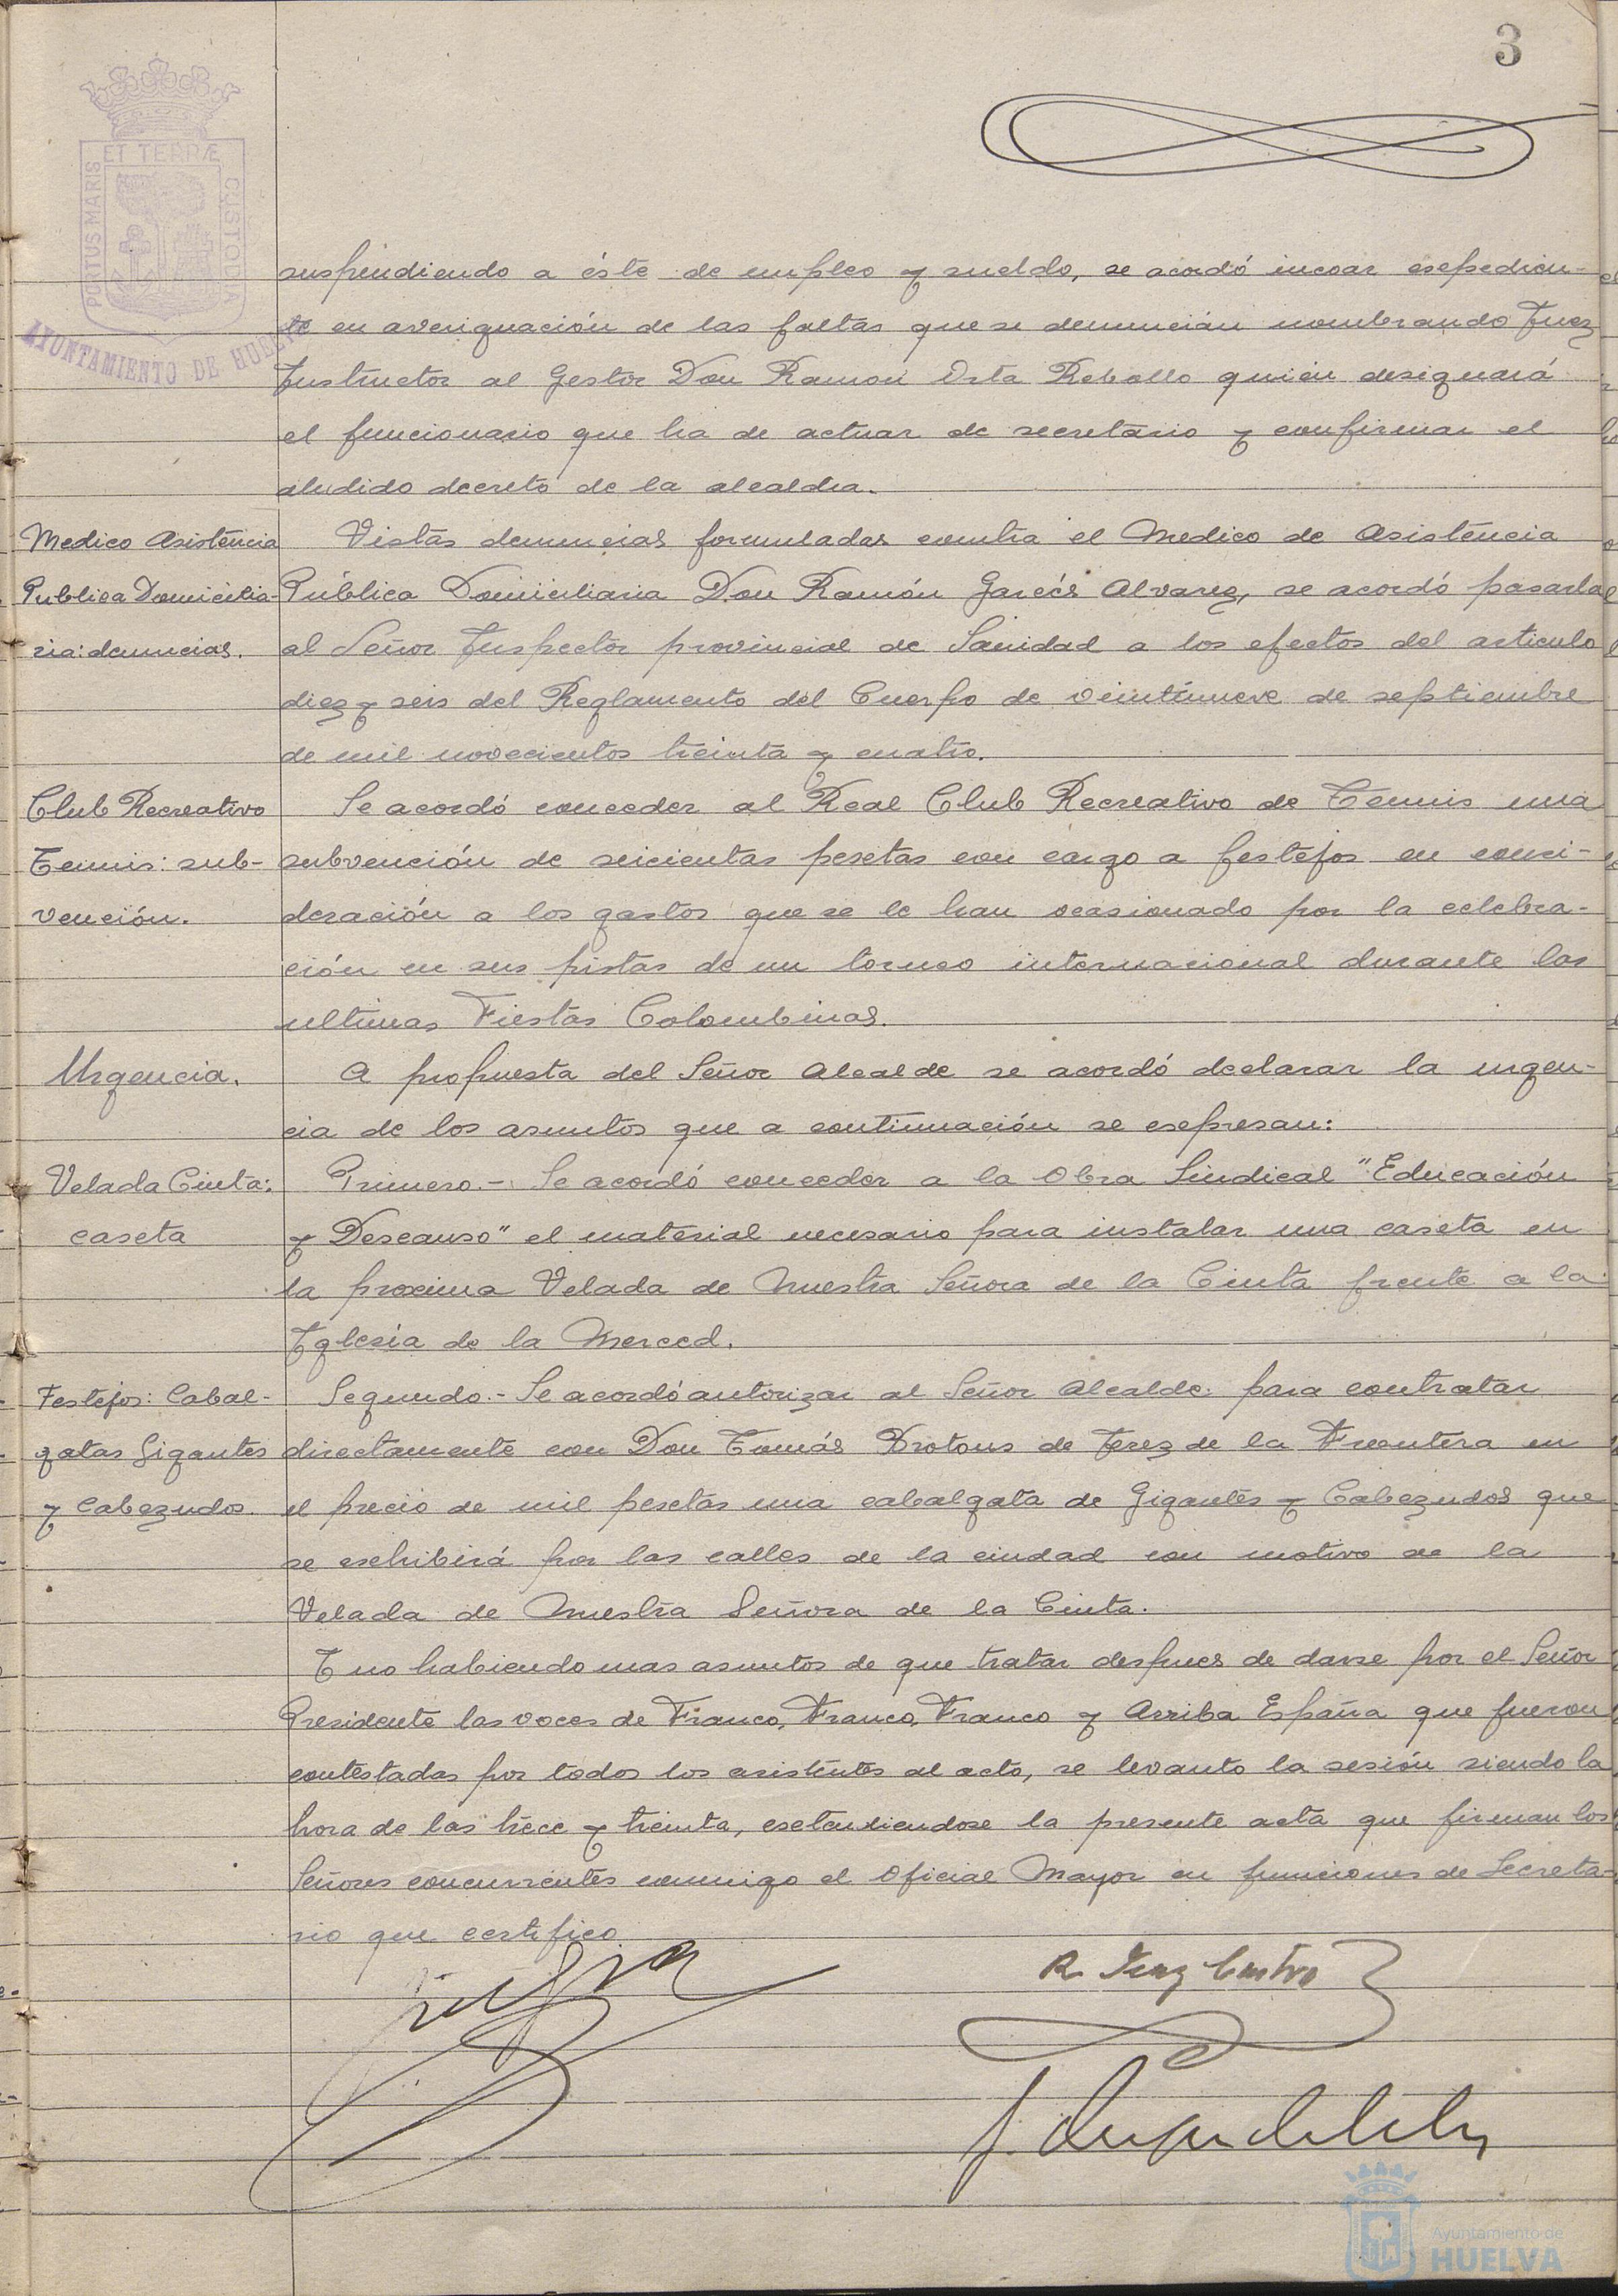 3
ET TERRÆ
PORTUS MARIS
CUSTODIA
AYUNTAMIENTO DE HUELVA
suspendiendo a éste de empleo y sueldo, se acordó incoar espedien-
te en averiguación de las faltas que se denuncián nombrando Juez
Instructor al Gestor Don Ramón Orta Rebollo quien designará
el funcionario que ha de actuar de secretario y confirmar el
aludido decreto de la alcaldia.
Medico Asistencia
Publica Domicilia-
ria: denuncias.
Vistas denuncias formuladas contra el Medico de Asistencia
Pública Domiciliaria Don Ramón Garcés Alvarez, se acordó pasarlas
al Señor Inspector provincial de Sanidad a los efectos del articulo
diez y seis del Reglamento del Cuerpo de veintinueve de septiembre
de mil novecientos treinta y cuatro.
Club Recreativo
Tennis: sub-
vención.
Se acordó conceder al Real Club Recreativo de Tennis una
subvención de seicientas pesetas con cargo a festejos en consi-
deración a los gastos que se le han ocasionado por la celebra-
ción en sus pistas de un torneo internacional durante las
ultimas Fiestas Colombinas.
Urgencia.
A propuesta del Señor Alcalde se acordó declarar la urgen-
cia de los asuntos que a continuación se expresan:
Velada Cinta:
caseta
Primero.- Se acordó conceder a la Obra Sindical "Educación
y Descanso" el material necesario para instalar una caseta en
la proxima Velada de Nuestra Señora de la Cinta frente a la
Iglesia de la Merced.
Festejos: Cabal-
gatas Gigantes
y Cabezudos.
Segundo.- Se acordó autorizar al Señor Alcalde para contratar
directamente con Don Tomás Drotons de Jerez de la Frontera en
el precio de mil pesetas una cabalgata de Gigantes y Cabezudos que
se exhibirá por las calles de la ciudad con motivo de la
Velada de Nuestra Señora de la Cinta.
Y no habiendo mas asuntos de que tratar despues de darse por el Señor
Presidente las voces de Franco, Franco, Franco y Arriba España que fueron
contestadas por todos los asistentes al acto, se levanto la sesión siendo la
hora de las trece y treinta, extendiendose la presente acta que firman los
Señores concurrentes conmigo el Oficial Mayor en funciones de Secreta-
rio que certifico.
Ayuntamiento de
HUELVA